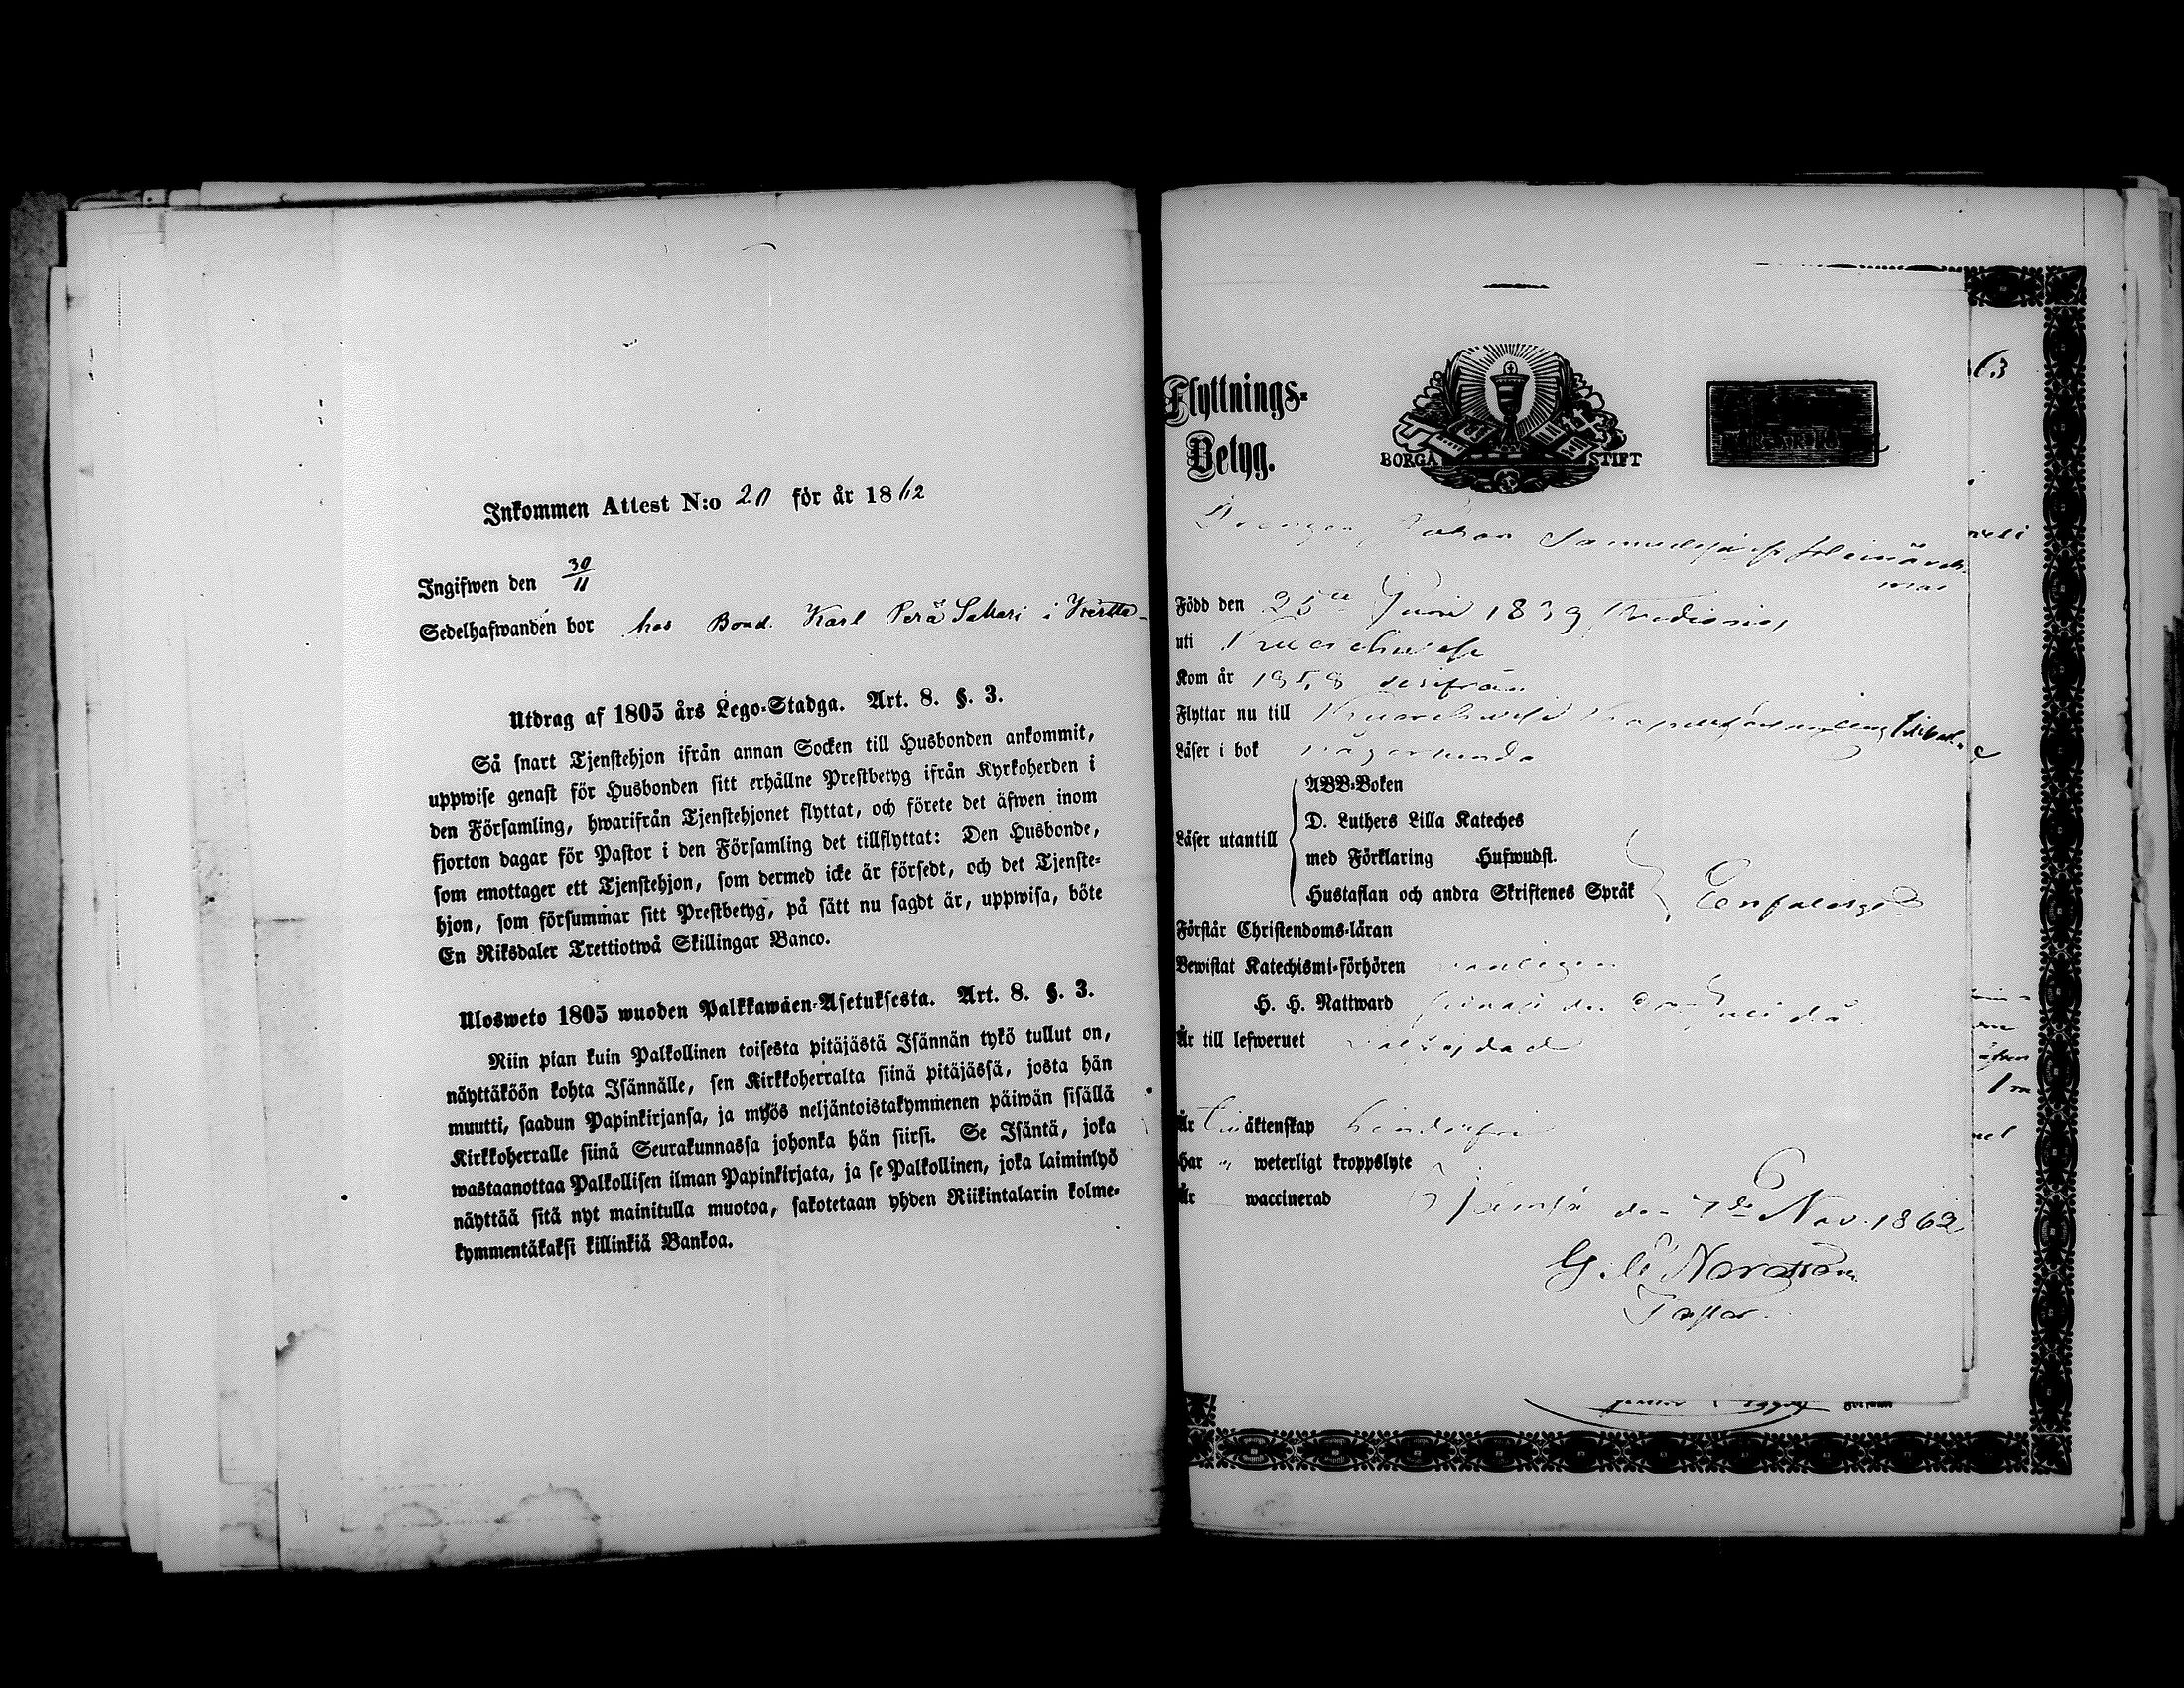 Inkommen Attest N:o 20 för år 1862
Ingifwen den 30/11
Sedelhafwanden bor hos Bond. Karl Perä Sahari i
Utdrag af 1805 års Lego-Stadga. Art. 8. §. 3.
Så snart Tjenstehjon ifrån annan Socken till Husbonden ankommit,
uppwise genast för Husbonden sitt erhållne Prestbetyg ifrån Kyrkoherden i
den Församling, hwarifrån Tjenstehjonet flyttat, och förete det äfwen inom
fjorton dagar för Pastor i den Församling det tillflyttat: Den Husbonde,
som emottager ett Tjenstehjon, som dermed icke är försedt, och det Tjenste-
hjon, som försummar sitt Prestbetyg, på sätt nu sagdt är, uppwisa, böte
En Riksdaler Trettiotwå Skillingar Banco.
Ulosweto 1805 wuoden Palkkawäen-Asetuksesta. Art. 8. §. 3.
Niin pian kuin Palkollinen toisesta pitäjästä Isännän tykö tullut on,
näyttäköön kohta Isännälle, sen Kirkkoherralta siinä pitäjässä, josta hän
muutti, saadun Papinkirjansa, ja myös neljäntoistakymmenen päiwän sisällä
Kirkkoherralle siinä Seurakunnassa johonka hän siirsi. Se Isäntä, joka
wastaanottaa Palkollisen ilman Papinkirjata, ja se Palkollinen, joka laiminlyö
näyttää sitä nyt mainitulla muotoa, sakotetaan yhden Riikintalarin kolme-
kymmentäkaksi killinkiä Bankoa.
Flyttnings-
Betyg.
BORGÅ STIFT
63
Drengen Johan
Född den 25te Juni 1839
uti
Kom år 1858 derifrån
Flyttar nu till
Läser i bok någorlunda
Läser utantill
ABB-Boken
D. Luthers Lilla Kateches
med Förklaring Hufwudst.
Hustaflan och andra Skriftenes Språk
Förstår Christendoms-läran
Bewistat Katechismi-förhören vanligen
H. H. Nattward
Är till lefwernet
Är till äktenskap
har weterligt kroppslyte
Är waccinerad
Jämsä den 7de Nov. 1862
Pastor.